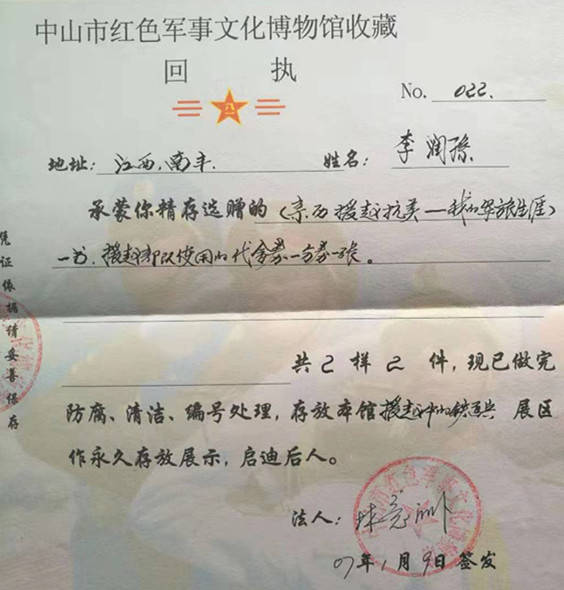 中山市红色军事文化博物馆收藏
回 执
No. 022.
地址: 江西.南丰. 姓名: 李润豫
承蒙你精存选赠的（亲历援越抗美一我的军旅生涯）
一书.援越部队使用的代金券一分券一张。
共 2 样 2 件，现已做完
防腐、清洁、编号处理，存放本馆援越中的铁道兵 展区
作永久存放展示，启迪后人。
法人：
07年1月9日 签发
凭证依据请妥善保存